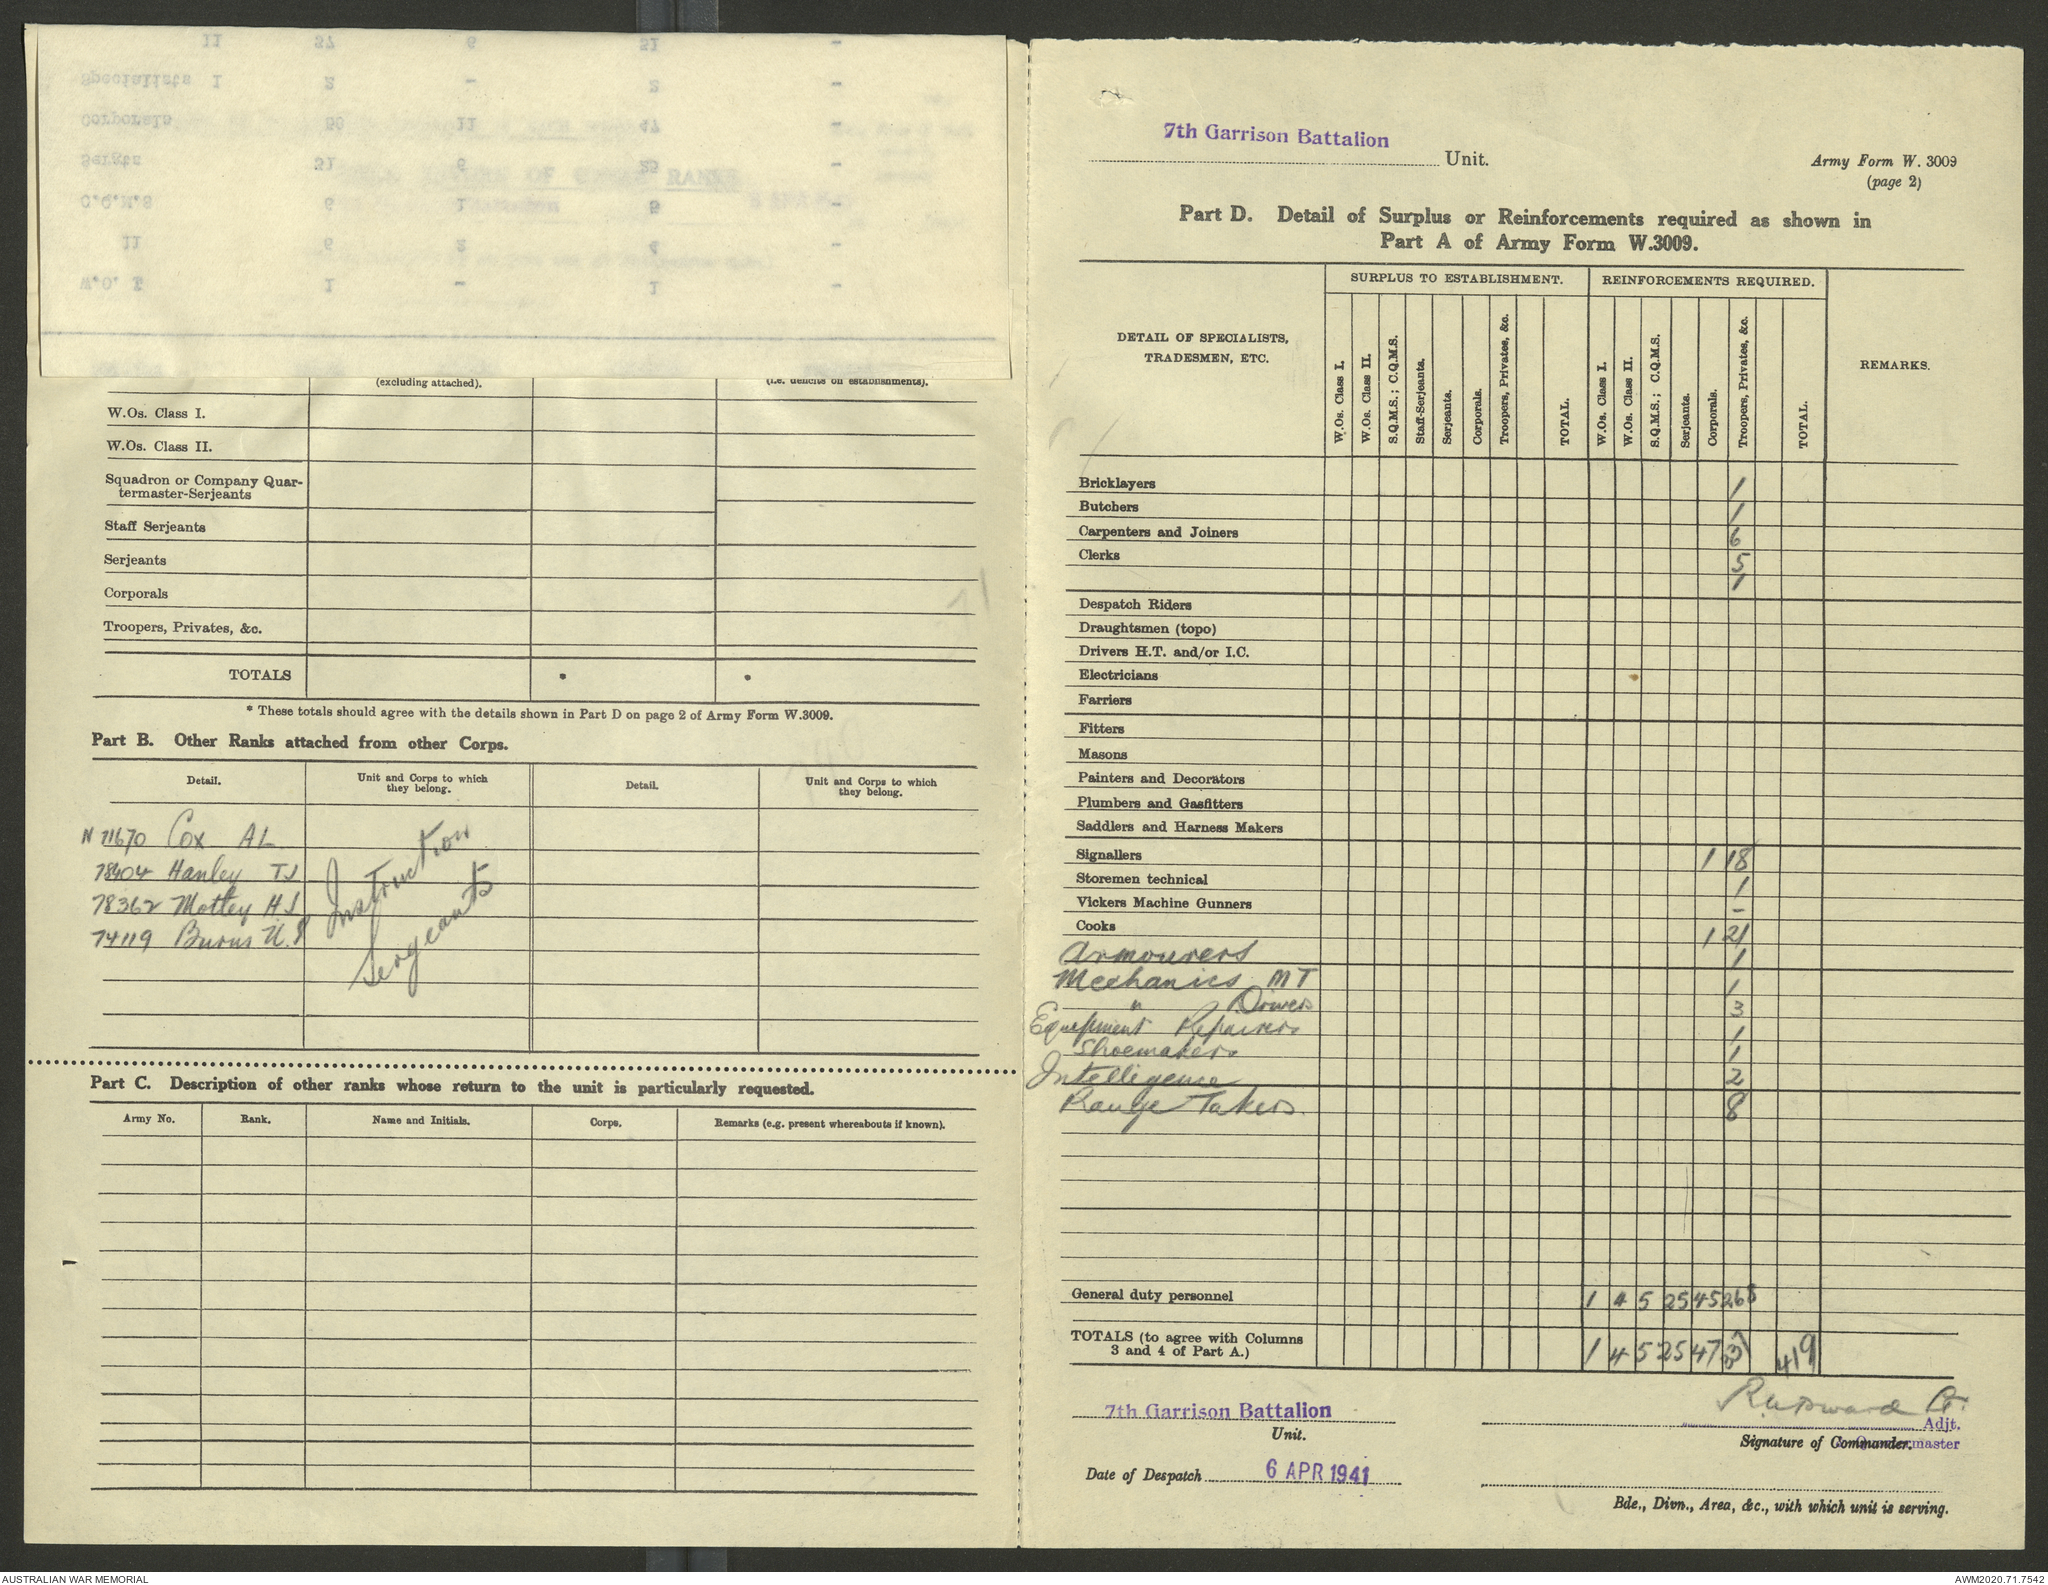 11 37 6 51 -
Specialists 1 2 - 2 -
Corporals 50 11 47 -
Sergts 31 6 25 -
C.Q.M.S 6 1 5 -
11 6 2 4 -
W.O. I 1 - 1 -
(excluding attached).
(i.e. deficits on establishments).
W.Os. Class I.
W.Os. Class II.
Squadron or Company Quar-
termaster-Serjeants
Staff Serjeants
Serjeants
Corporals
Troopers, Privates, &c.
TOTALS * *
* These totals should agree with the details shown in Part D on page 2 of Army Form W.3009.
Part B. Other Ranks attached from other Corps.
Detail. Unit and Corps to which they belong. Detail. Unit and Corps to which they belong.
N 71670 Cox A L
78404 Hanley T J
78362 Mottey H J
74119 Burns
Instruction
Sergeants
Part C. Description of other ranks whose return to the unit is particularly requested.
Army No. Rank. Name and Initials. Corps. Remarks (e.g. present whereabouts if known).
7th Garrison Battalion
Unit.
Army Form W. 3009
(page 2)
Part D. Detail of Surplus or Reinforcements required as shown in
Part A of Army Form W.3009.
SURPLUS TO ESTABLISHMENT. REINFORCEMENTS REQUIRED.
DETAIL OF SPECIALISTS,
TRADESMEN, ETC.
W.Os. Class I.
W.Os. Class II.
S.Q.M.S.; C.Q.M.S.
Staff-Serjeants.
Serjeants.
Corporals.
Troopers, Privates, &c.
TOTAL.
W.Os. Class I.
W.Os. Class II.
S.Q.M.S.; C.Q.M.S.
Serjeants.
Corporals.
Troopers, Privates, &c.
TOTAL.
REMARKS.
Bricklayers 1
Butchers 1
Carpenters and Joiners 6
Clerks 5
1
Despatch Riders
Draughtsmen (topo)
Drivers H.T. and/or I.C.
Electricians
Farriers
Fitters
Masons
Painters and Decorators
Plumbers and Gasfitters
Saddlers and Harness Makers
Signallers 1 18
Storemen technical 1
Vickers Machine Gunners -
Cooks 1 21
Armourers 1
Mechanics MT 1
" Drivers 3
Equipment Repairers 1
Shoemakers 1
Intelligence 2
Range Takers 8
General duty personnel 1 4 5 25 45 268
TOTALS (to agree with Columns
3 and 4 of Part A.) 1 4 5 25 47 419
7th Garrison Battalion
Unit.
Adjt.
Signature of Commander.
Date of Despatch 6 APR 1941
Bde., Divn., Area, &c., with which unit is serving.
AUSTRALIAN WAR MEMORIAL
AWM2020.71.7542